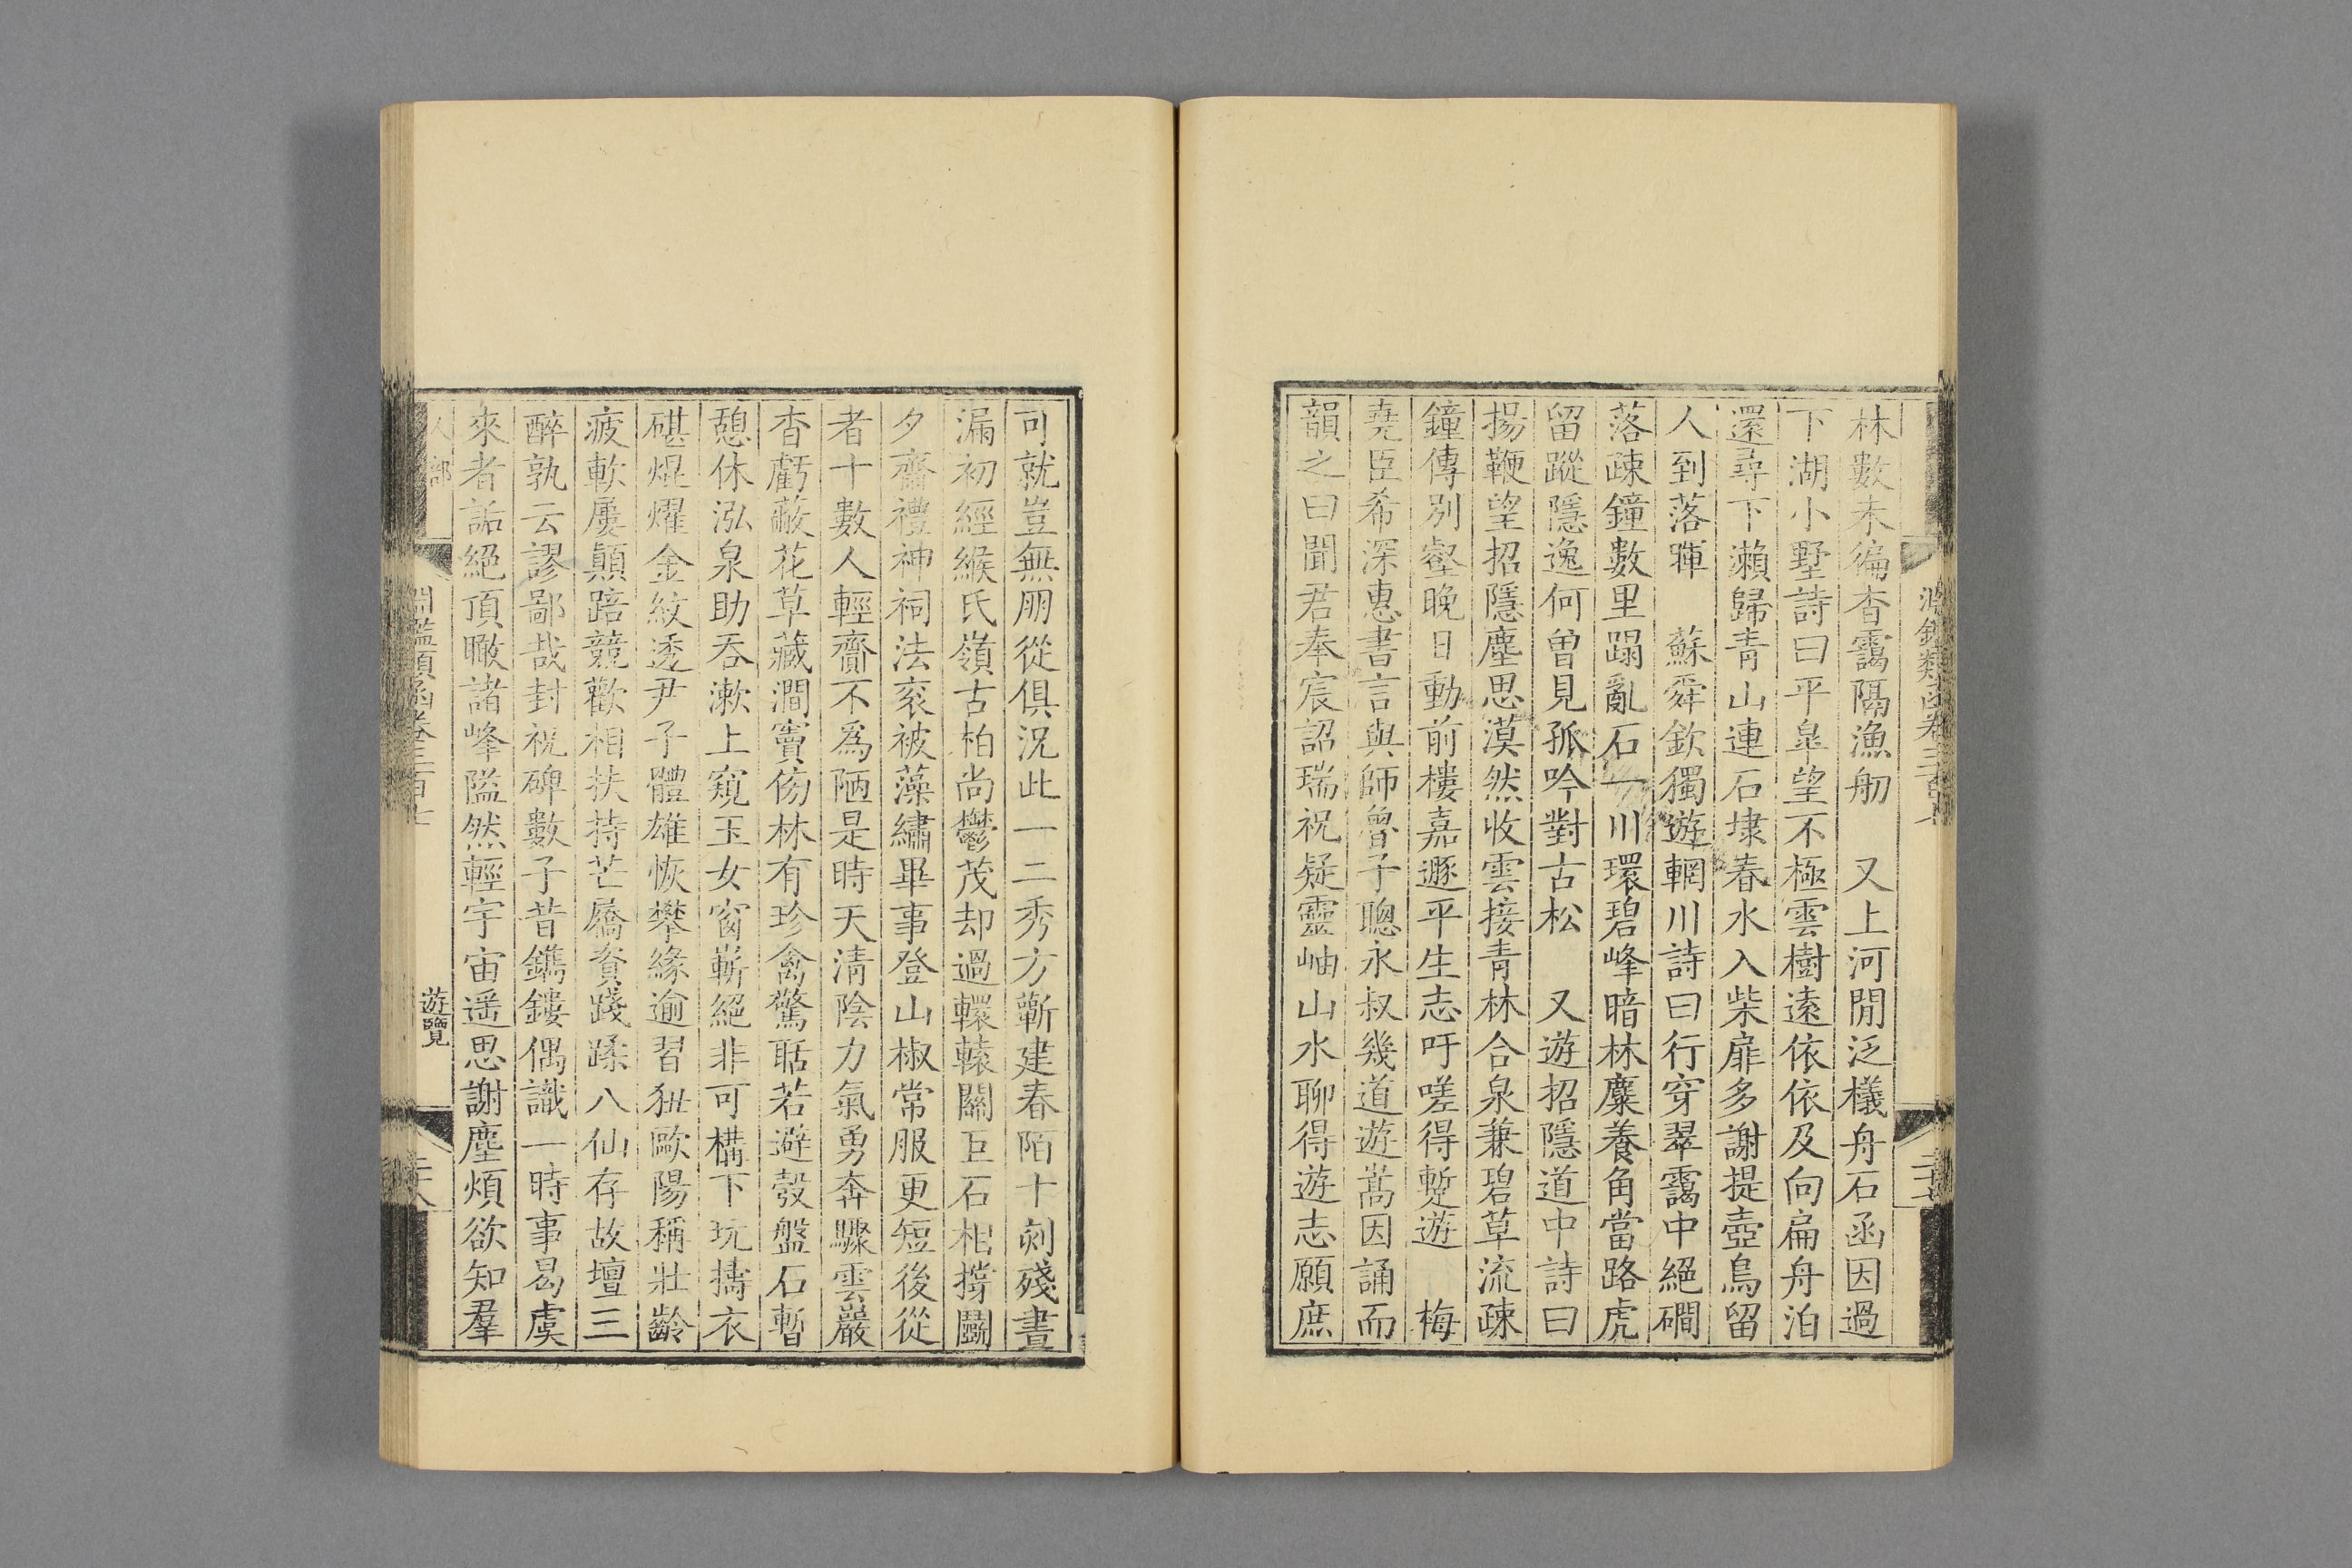 林數未徧杳靄隔漁舠　又上河閒泛檥舟石函因過
下湖小墅詩曰平臯望不極雲樹遠依依及向扁舟泊
還尋下瀨歸青山連石埭春水入柴扉多謝提壺鳥留
人到落暉　蘇舜欽獨遊輞川詩曰行穿翠靄中絕磵
落疎鐘數里蹋亂石一川環碧峰暗林麋養角當路虎
留蹤隱逸何曾見孤吟對古松　又遊招隱道中詩曰
揚鞭望招隱塵思漠然收雲接青林合泉兼碧草流疎
鐘傳別壑晚日動前樓嘉遯平生志吁嗟得蹔遊　梅
堯臣希深惠書言與師魯子聰永叔幾道遊嵩因誦而
韻之曰聞君奉宸詔瑞祝疑靈岫山水聊得遊志願庶
可就豈無朋從俱況此一二秀方蘄建春陌十刻殘晝
漏初經緱氏嶺古柏尚鬱茂却過轘轅關巨石相撐鬭
夕齋禮神祠法衮被藻繡畢事登山椒常服更短後從
者十數人輕齎不爲陋是時天清陰力氣勇奔驟雲巖
杳虧蔽花草藏澗竇傍林有珍禽驚聒若避彀盤石暫
憩休泓泉助吞漱上窺玉女窗嶄絕非可構下玩擣衣
碪焜燿金紋透尹子體雄恢攀緣逾習狃歐陽稱壯齡
疲軟屢顛踣競歡相扶持芒屩資踐蹂八仙存故壇三
醉孰云謬鄙哉封祝碑數子昔鐫鏤偶識一時事曷虞
來者詬絕頂瞰諸峰隘然輕宇宙遥思謝塵煩欲知羣
人部 淵鑑類函卷三百七 遊覽 二十八